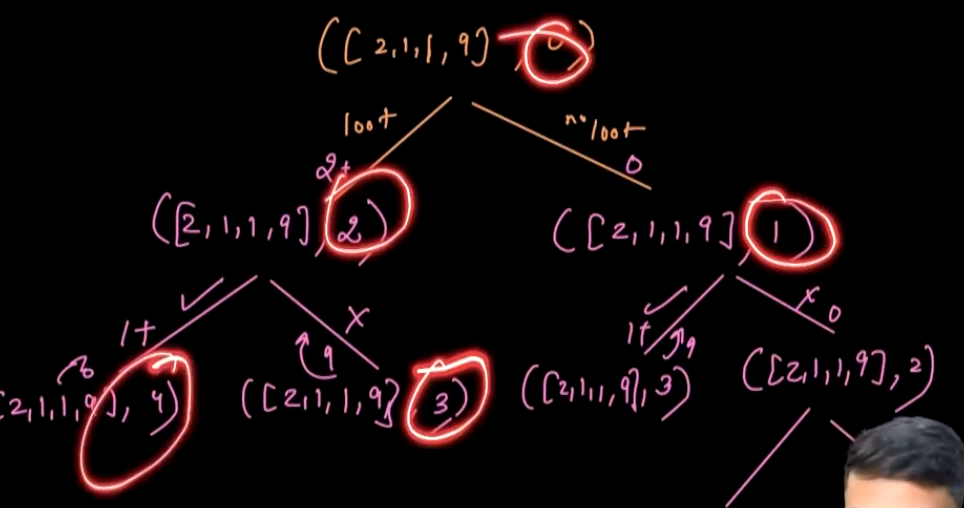 ([2,1,1,9], 0)
loot
no loot
2+
0
([2,1,1,9], 2)
([2,1,1,9], 1)
1+
x
1+
9
x 0
9
([2,1,1,9], 2)
2,1,1,9], 4)
([2,1,1,9], 3)
([2,1,1,9], 3)